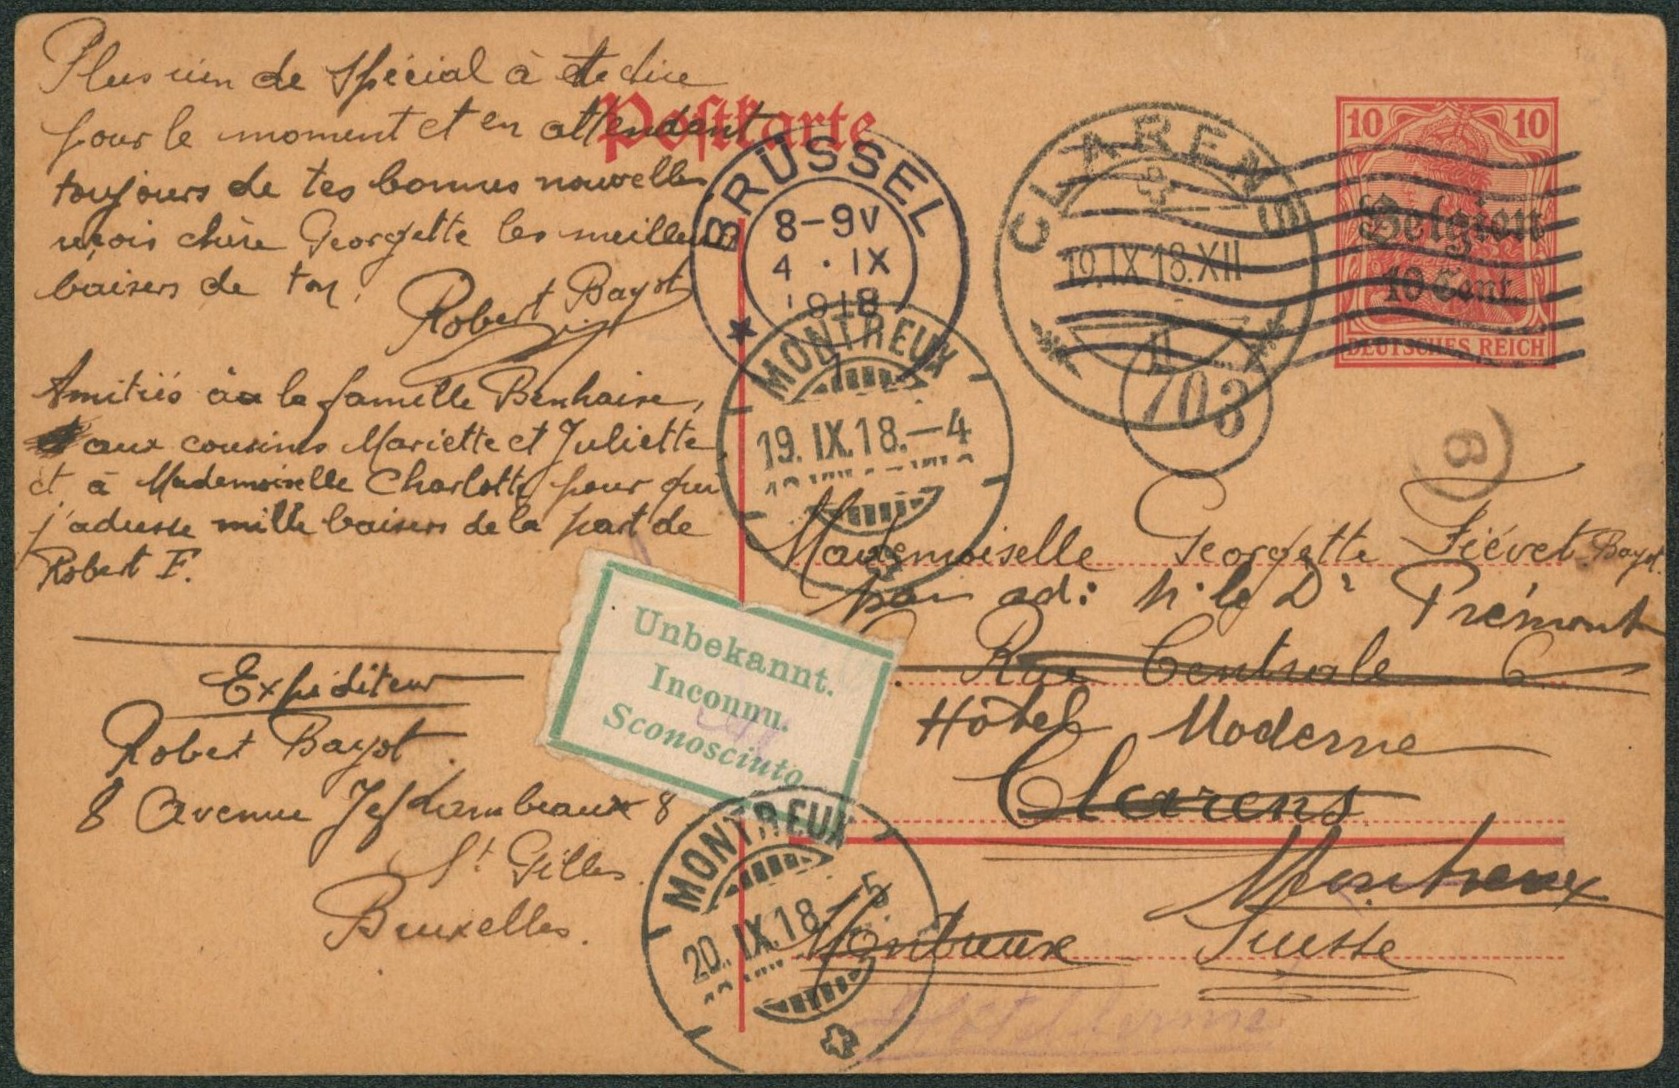 Plus rien de spécial à te dire
pour le moment et en attendant
toujours de tes bonnes nouvelles
reçois chère Georgette les meilleurs
baisers de ton
Robert Bayot
Amitiés à la famille Benhaire,
aux cousines Mariette et Juliette
et à Mademoiselle Charlotte pour qui
j'adresse mille baisers de la part de
Robert F.
Expéditeur
Robert Bayot
8 Avenue Jef Lambeaux 8
St Gilles
Bruxelles.
Postkarte
BRÜSSEL
8-9V
4 · IX
1918
CLARENS
19.IX.18.XII
II
703
10 10
Belgien
10 Cent.
DEUTSCHES REICH
6
MONTREUX
19.IX.18.–4
Mademoiselle Georgette Fiévet-Bayot
par ad: Dr Prémont
Rue Centrale 6
Hôtel Moderne
Clarens
Montreux
Montreux Suisse
Unbekannt.
Inconnu.
Sconosciuto
MONTREUX
20.IX.18.–5